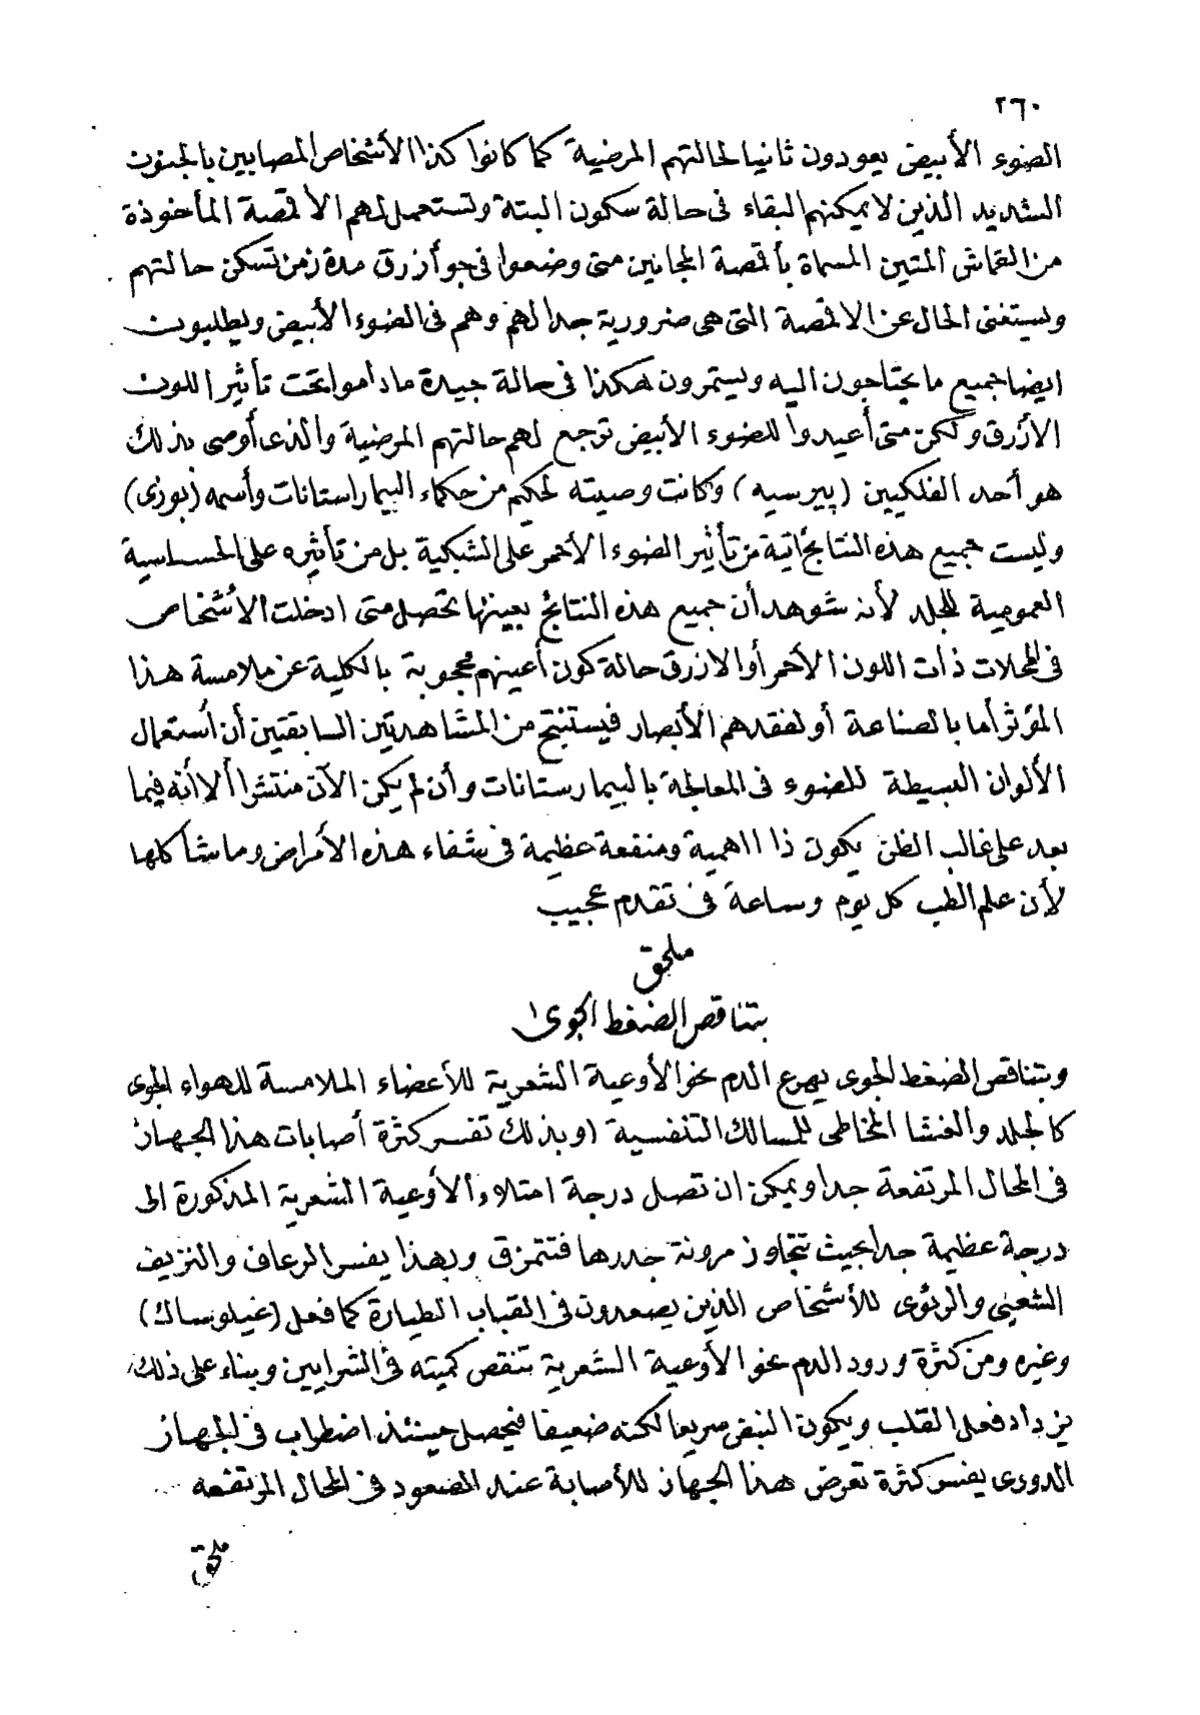 ٢٦٠
الضوء الأبيض يعودون ثانيا لحالتهم المرضية كما كانوا كذا الأشخاص المصابين بالجنون
الشديد الذين لا يمكنهم البقاء فى حالة سكون البتة وتستعمل لهم الأقمصة المأخوذة
من القماش المتين المسماة بأقمصة المجانين متى وضعوا فى جو أزرق مدة زمن تسكن حالتهم
ويستغنى الحال عن الاقمصة التى هى ضرورية جدا لهم وهم فى الضوء الأبيض ويطلبون
ايضا جميع ما يحتاجون اليه ويستمرون هكذا فى حالة جيدة ماداموا تحت تأثير اللون
الأزرق ولكن متى أعيدوا للضوء الأبيض ترجع لهم حالتهم المرضية والذى أوصى بذلك
هو أحد الفلكيين (پيرسيه) وكانت وصيته لحكيم من حكماء البيمارستانات وأسمه (بوزى)
وليست جميع هذه النتائج اتية من تأثير الضوء الأحمر على الشبكية بل من تأثيره على الحساسية
العمومية للجلد لأنه شوهد أن جميع هذه النتائج بعينها تحصل متى ادخلت الأشخاص
فى المحلات ذات اللون الأحمر أو الازرق حالة كون أعينهم محجوبة بالكلية عن ملامسة هذا
المؤثر أما بالصناعة أو لفقدهم الأبصار فيستنتج من المشاهدتين السابقتين أن أستعمال
الألوان البسيطة للضوء فى المعالجة بالبيمارستانات وأن لم يكن الآن منتشرا ألا أنه فيما
بعد على غالب الظن يكون ذا اهمية ومنفعة عظيمة فى شفاء هذه الأمراض وما شاكلها
لأن علم الطب كل يوم وساعة فى تقدم عجيب
ملحق
بتناقص الضغط الجوى
وبتناقص الضغط الجوى يهرع الدم نحو الأوعية الشعرية للأعضاء الملامسة للهواء الجوى
كالجلد والغشا المخاطى للمسالك التنفسية (وبذلك تفسر كثرة أصابات هذا الجهاز
فى المحال المرتفعة جدا ويمكن ان تصل درجة امتلاء الأوعية الشعرية المذكورة الى
درجة عظيمة جدا بحيث تتجاوز مرونة جدرها فتتمزق وبهذا يفسر الرعاف والنزيف
الشعبى والرئوى للأشخاص الذين يصعدون فى القباب الطيارة كما فعل (غيلوساك)
وغيره ومن كثرة ورود الدم نحو الأوعية الشعرية تنقص كميته فى الشرايين وبناء على ذلك
يزداد فعل القلب ويكون النبض سريعا لكنه ضعيفا فيحصل حينئذ اضطراب فى الجهاز
الدورى يفسر كثرة تعرض هذا الجهاز للأصابة عند الصعود فى المحال المرتفعه
ملحق